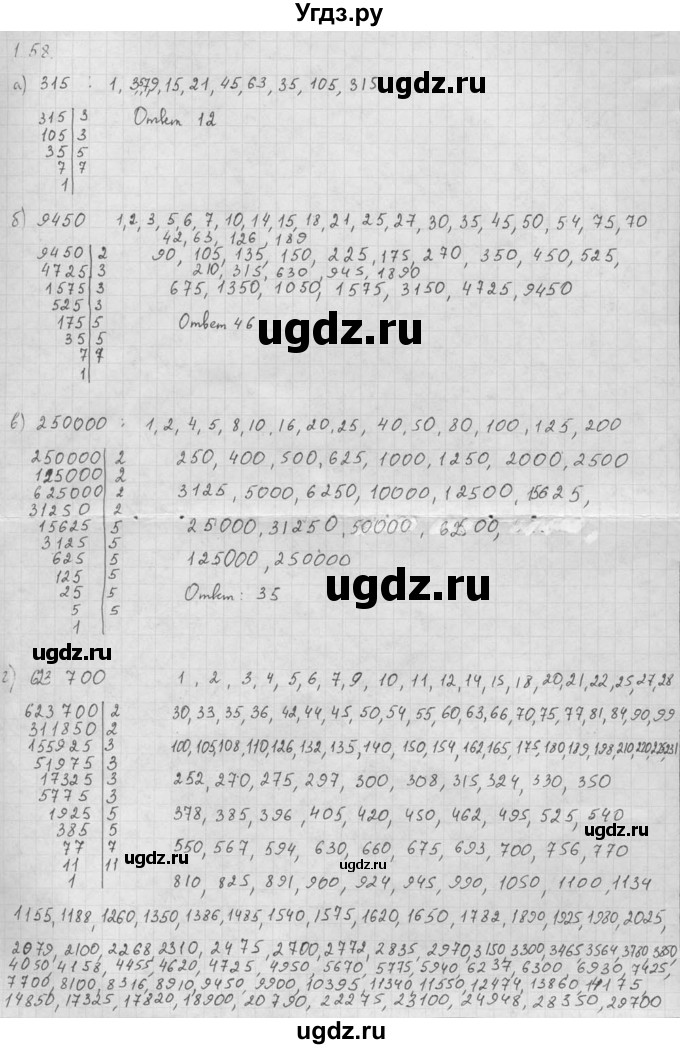 Угдз.ру
1.58.
а) 315 : 1, 3,5,7,9, 15, 21, 45, 63, 35, 105, 315
ugdz.ru
315 | 3
105 | 3
35 | 5
7 | 7
1
Ответ 12
б) 9450 1, 2, 3, 5, 6, 7, 10, 14, 15, 18, 21, 25, 27, 30, 35, 45, 50, 54, 75, 70
42, 63, 126, 189
90, 105, 135, 150, 225, 175, 270, 350, 450, 525,
210, 315, 630, 945, 1890
675, 1350, 1050, 1575, 3150, 4725, 9450
9450 | 2
4725 | 3
1575 | 3
525 | 3
175 | 5
35 | 5
7 | 7
1
Ответ 46
ugdz.ru
в) 250000 : 1, 2, 4, 5, 8, 10, 16, 20, 25, 40, 50, 80, 100, 125, 200
250, 400, 500, 625, 1000, 1250, 2000, 2500
3125, 5000, 6250, 10000, 12500, 15625,
25000, 31250, 50000, 62500,
125000, 250000
250000 | 2
125000 | 2
625000 | 2
31250 | 2
15625 | 5
3125 | 5
625 | 5
125 | 5
25 | 5
5 | 5
1
Ответ: 35
ugdz.ru
ugdz.ru
г) 623 700 1, 2, 3, 4, 5, 6, 7, 9, 10, 11, 12, 14, 15, 18, 20, 21, 22, 25, 27, 28
30, 33, 35, 36, 42, 44, 45, 50, 54, 55, 60, 63, 66, 70, 75, 77, 81, 84, 90, 99
100, 105, 108, 110, 126, 132, 135, 140, 150, 154, 162, 165, 175, 180, 189, 198, 210, 220, 225, 231
252, 270, 275, 297, 300, 308, 315, 324, 330, 350
378, 385, 396, 405, 420, 450, 462, 495, 525, 540
550, 567, 594, 630, 660, 675, 693, 700, 756, 770
810, 825, 891, 900, 924, 945, 990, 1050, 1100, 1134
623700 | 2
311850 | 2
155925 | 3
51975 | 3
17325 | 3
5775 | 3
1925 | 5
385 | 5
77 | 7
11 | 11
1
ugdz.ru
ugdz.ru
1155, 1188, 1260, 1350, 1386, 1485, 1540, 1575, 1620, 1650, 1782, 1890, 1925, 1980, 2025,
2079, 2100, 2268, 2310, 2475, 2700, 2772, 2835, 2970, 3150, 3300, 3465, 3564, 3780, 3850
4050, 4158, 4455, 4620, 4725, 4950, 5670, 5775, 5940, 6237, 6300, 6930, 7425,
7700, 8100, 8316, 8910, 9450, 9900, 10395, 11340, 11550, 12474, 13860, 14175,
14850, 17325, 17820, 18900, 20790, 22275, 23100, 24948, 28350, 29700
ugdz.ru